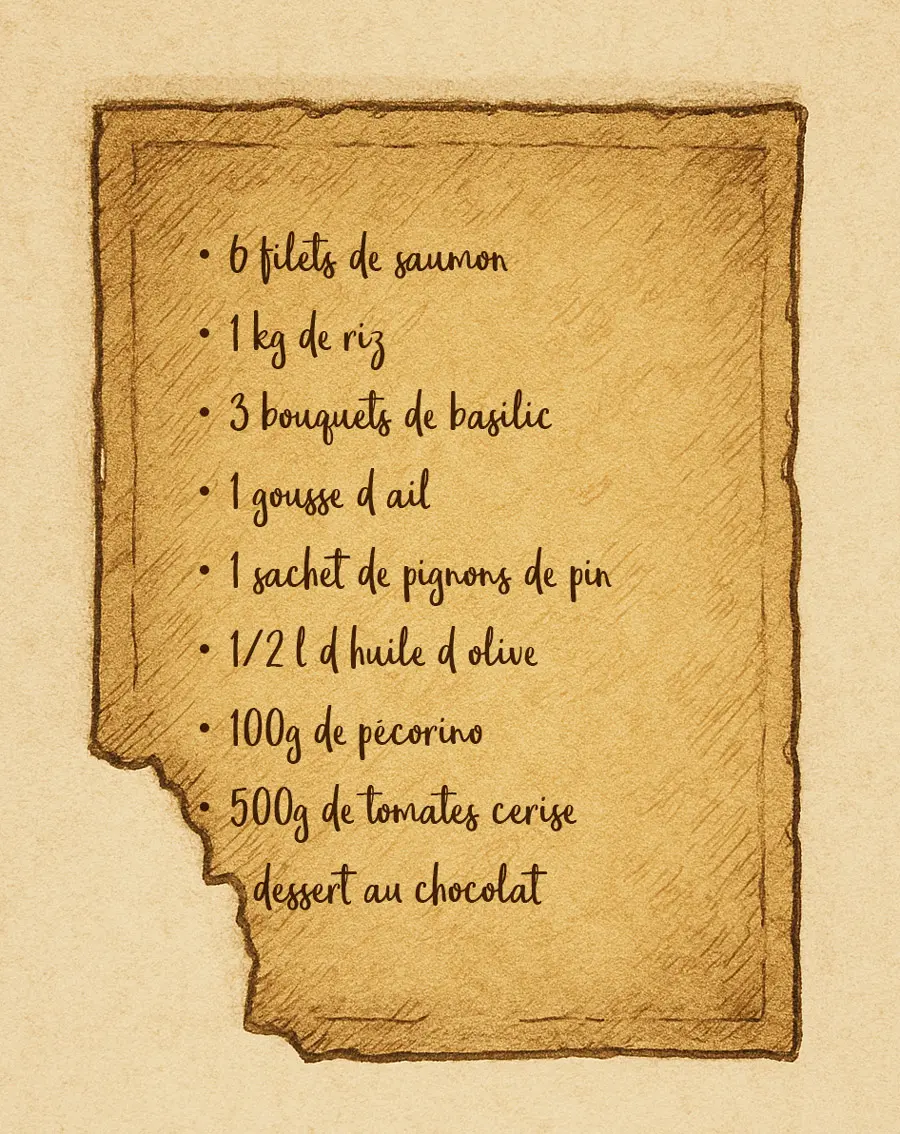 • 6 filets de saumon
• 1 kg de riz
• 3 bouquets de basilic
• 1 gousse d ail
• 1 sachet de pignons de pin
• 1/2 l d huile d olive
• 100g de pécorino
• 500g de tomates cerise
dessert au chocolat